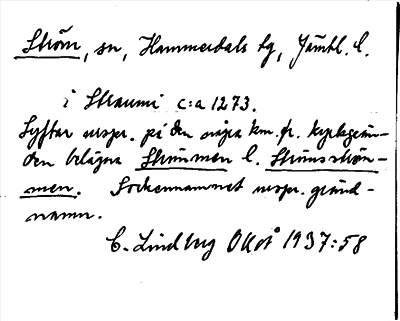 Ström, sn, Hammerdals tg, Jämtl. l.
i Straumi c:a 1273.
Syftar urspr. på den några km. fr. kyrkegrun-
den belägna Strömmen l. Strömsström-
men. Sockennamnet urspr. gränd-
namn.
C. Lindberg OUoÅ 1937:58